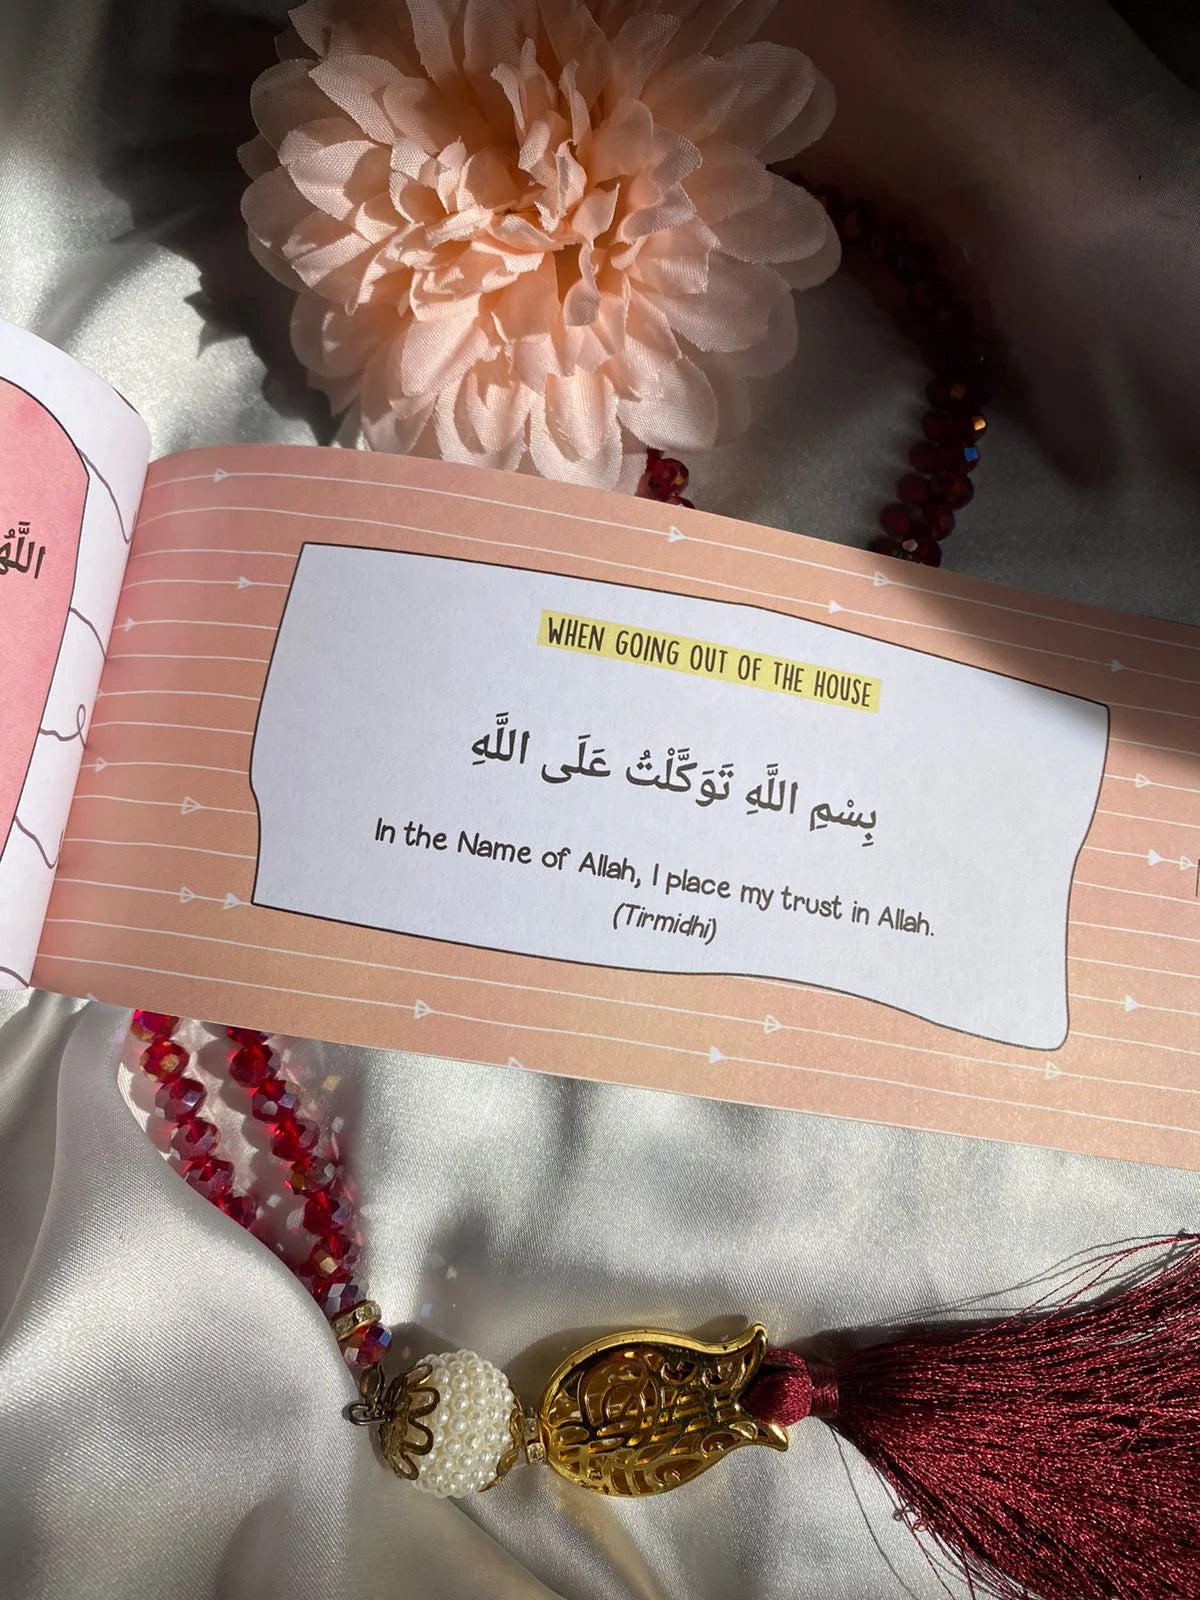 WHEN GOING OUT OF THE HOUSE
بِسْمِ اللَّهِ تَوَكَّلْتُ عَلَى اللَّهِ
In the Name of Allah, I place my trust in Allah.
(Tirmidhi)